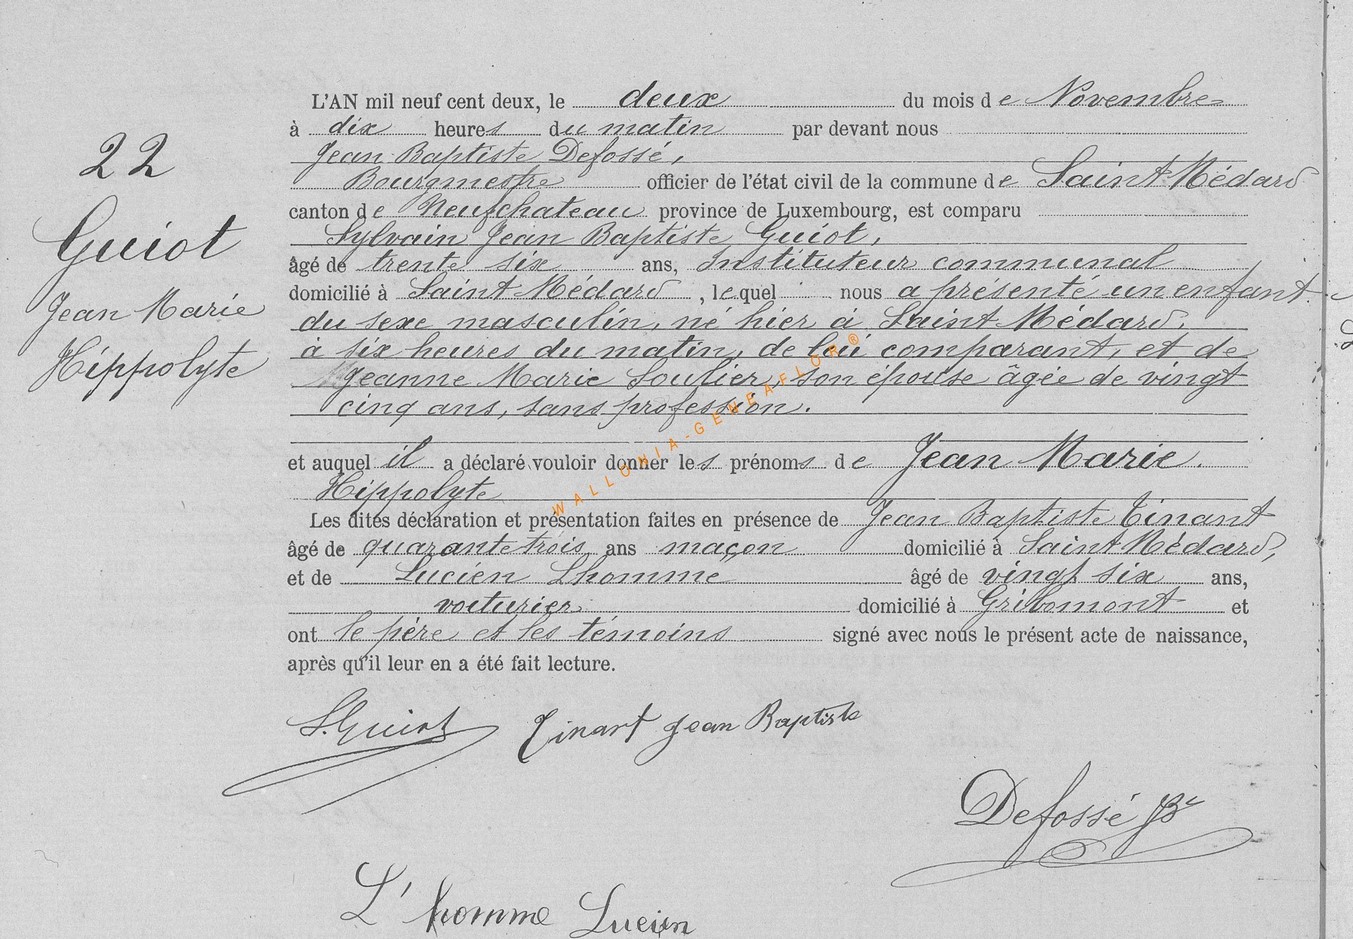 22
Guiot
Jean Marie
Hippolyte
L'AN mil neuf cent deux, le deux du mois de Novembre
à dix heures du matin par devant nous
Jean Baptiste Defossé,
Bourgmestre officier de l'état civil de la commune de Saint Médard
canton de Neufchateau province de Luxembourg, est comparu
Sylvain Jean Baptiste Guiot,
âgé de trente six ans, Instituteur communal
domicilié à Saint-Médard, lequel nous a présenté un enfant
du sexe masculin, né hier à Saint Médard,
à six heures du matin, de lui comparant, et de
Jeanne Marie Soulier, son épouse âgée de vingt
cinq ans, sans profession.
et auquel il a déclaré vouloir donner les prénoms de Jean Marie.
Hippolyte
Les dites déclaration et présentation faites en présence de Jean Baptiste Tinant
âgé de quarante trois ans maçon domicilié à Saint Médard,
et de Lucien Lhomme âgé de vingt six ans,
voiturier domicilié à Gribomont et
ont le père et les témoins signé avec nous le présent acte de naissance,
après qu'il leur en a été fait lecture.
S. Guiot Tinant Jean Baptiste
Defossé Be
L'homme Lucien
WALLONIA-GENEAFLOR®